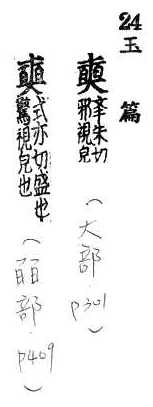 24
玉篇
辛朱切
邪視皃
(大部 p301)
奭
式亦切盛也
驚視皃也
(皕部 p409)